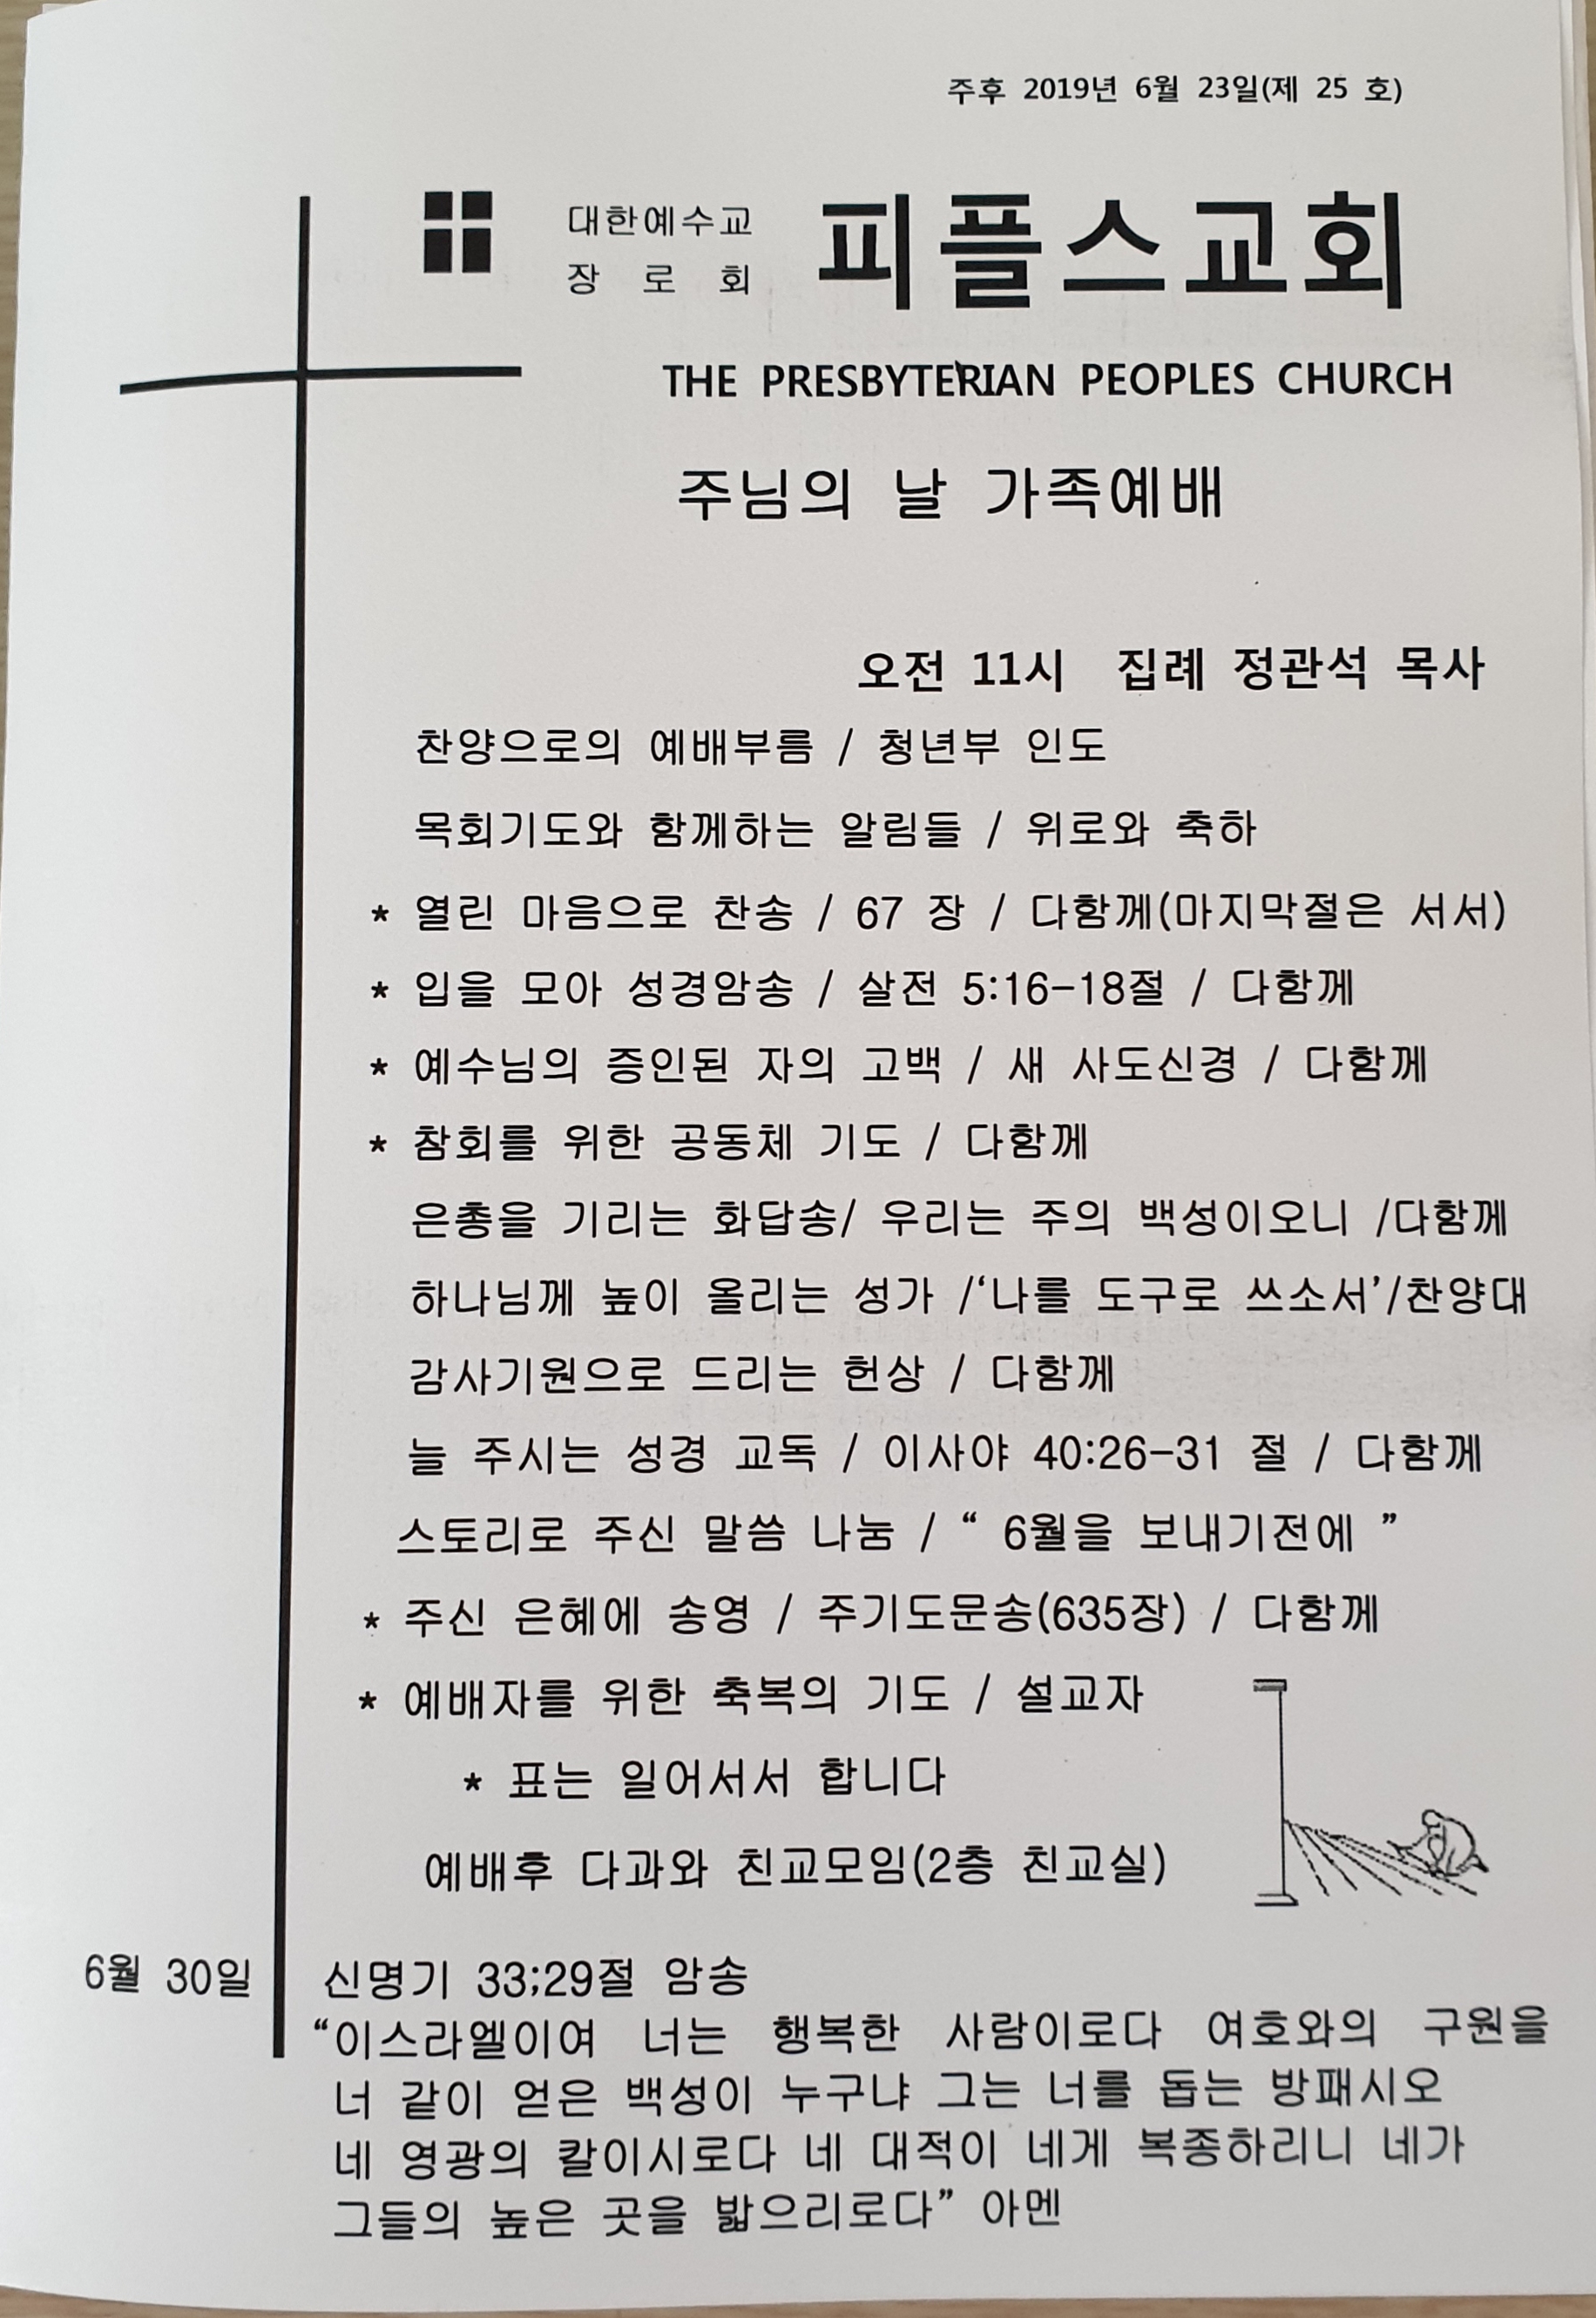 주후 2019년 6월 23일(제 25 호)
대한예수교
장 로 회
피플스교회
THE PRESBYTERIAN PEOPLES CHURCH
주님의 날 가족예배
오전 11시 집례 정관석 목사
찬양으로의 예배부름 / 청년부 인도
목회기도와 함께하는 알림들 / 위로와 축하
* 열린 마음으로 찬송 / 67 장 / 다함께(마지막절은 서서)
* 입을 모아 성경암송 / 살전 5:16-18절 / 다함께
* 예수님의 증인된 자의 고백 / 새 사도신경 / 다함께
* 참회를 위한 공동체 기도 / 다함께
은총을 기리는 화답송/ 우리는 주의 백성이오니 /다함께
하나님께 높이 올리는 성가 /‘나를 도구로 쓰소서’/찬양대
감사기원으로 드리는 헌상 / 다함께
늘 주시는 성경 교독 / 이사야 40:26-31 절 / 다함께
스토리로 주신 말씀 나눔 / “ 6월을 보내기전에 ”
* 주신 은혜에 송영 / 주기도문송(635장) / 다함께
* 예배자를 위한 축복의 기도 / 설교자
* 표는 일어서서 합니다
예배후 다과와 친교모임(2층 친교실)
6월 30일 신명기 33;29절 암송
“이스라엘이여 너는 행복한 사람이로다 여호와의 구원을
너 같이 얻은 백성이 누구냐 그는 너를 돕는 방패시오
네 영광의 칼이시로다 네 대적이 네게 복종하리니 네가
그들의 높은 곳을 밟으리로다” 아멘